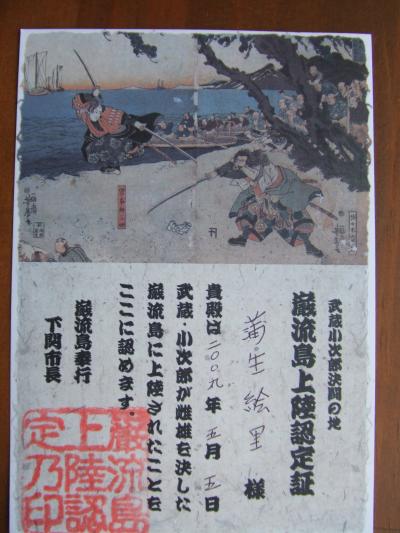 武蔵小次郎決闘の地
巌流島上陸認定証
蒲生絵里 様
貴殿は二〇〇九年 五月 五日
武蔵・小次郎が雌雄を決した
巌流島に上陸されたことを
ここに認めます。
巌流島奉行
下関市長
巌流島
上陸認
定乃印